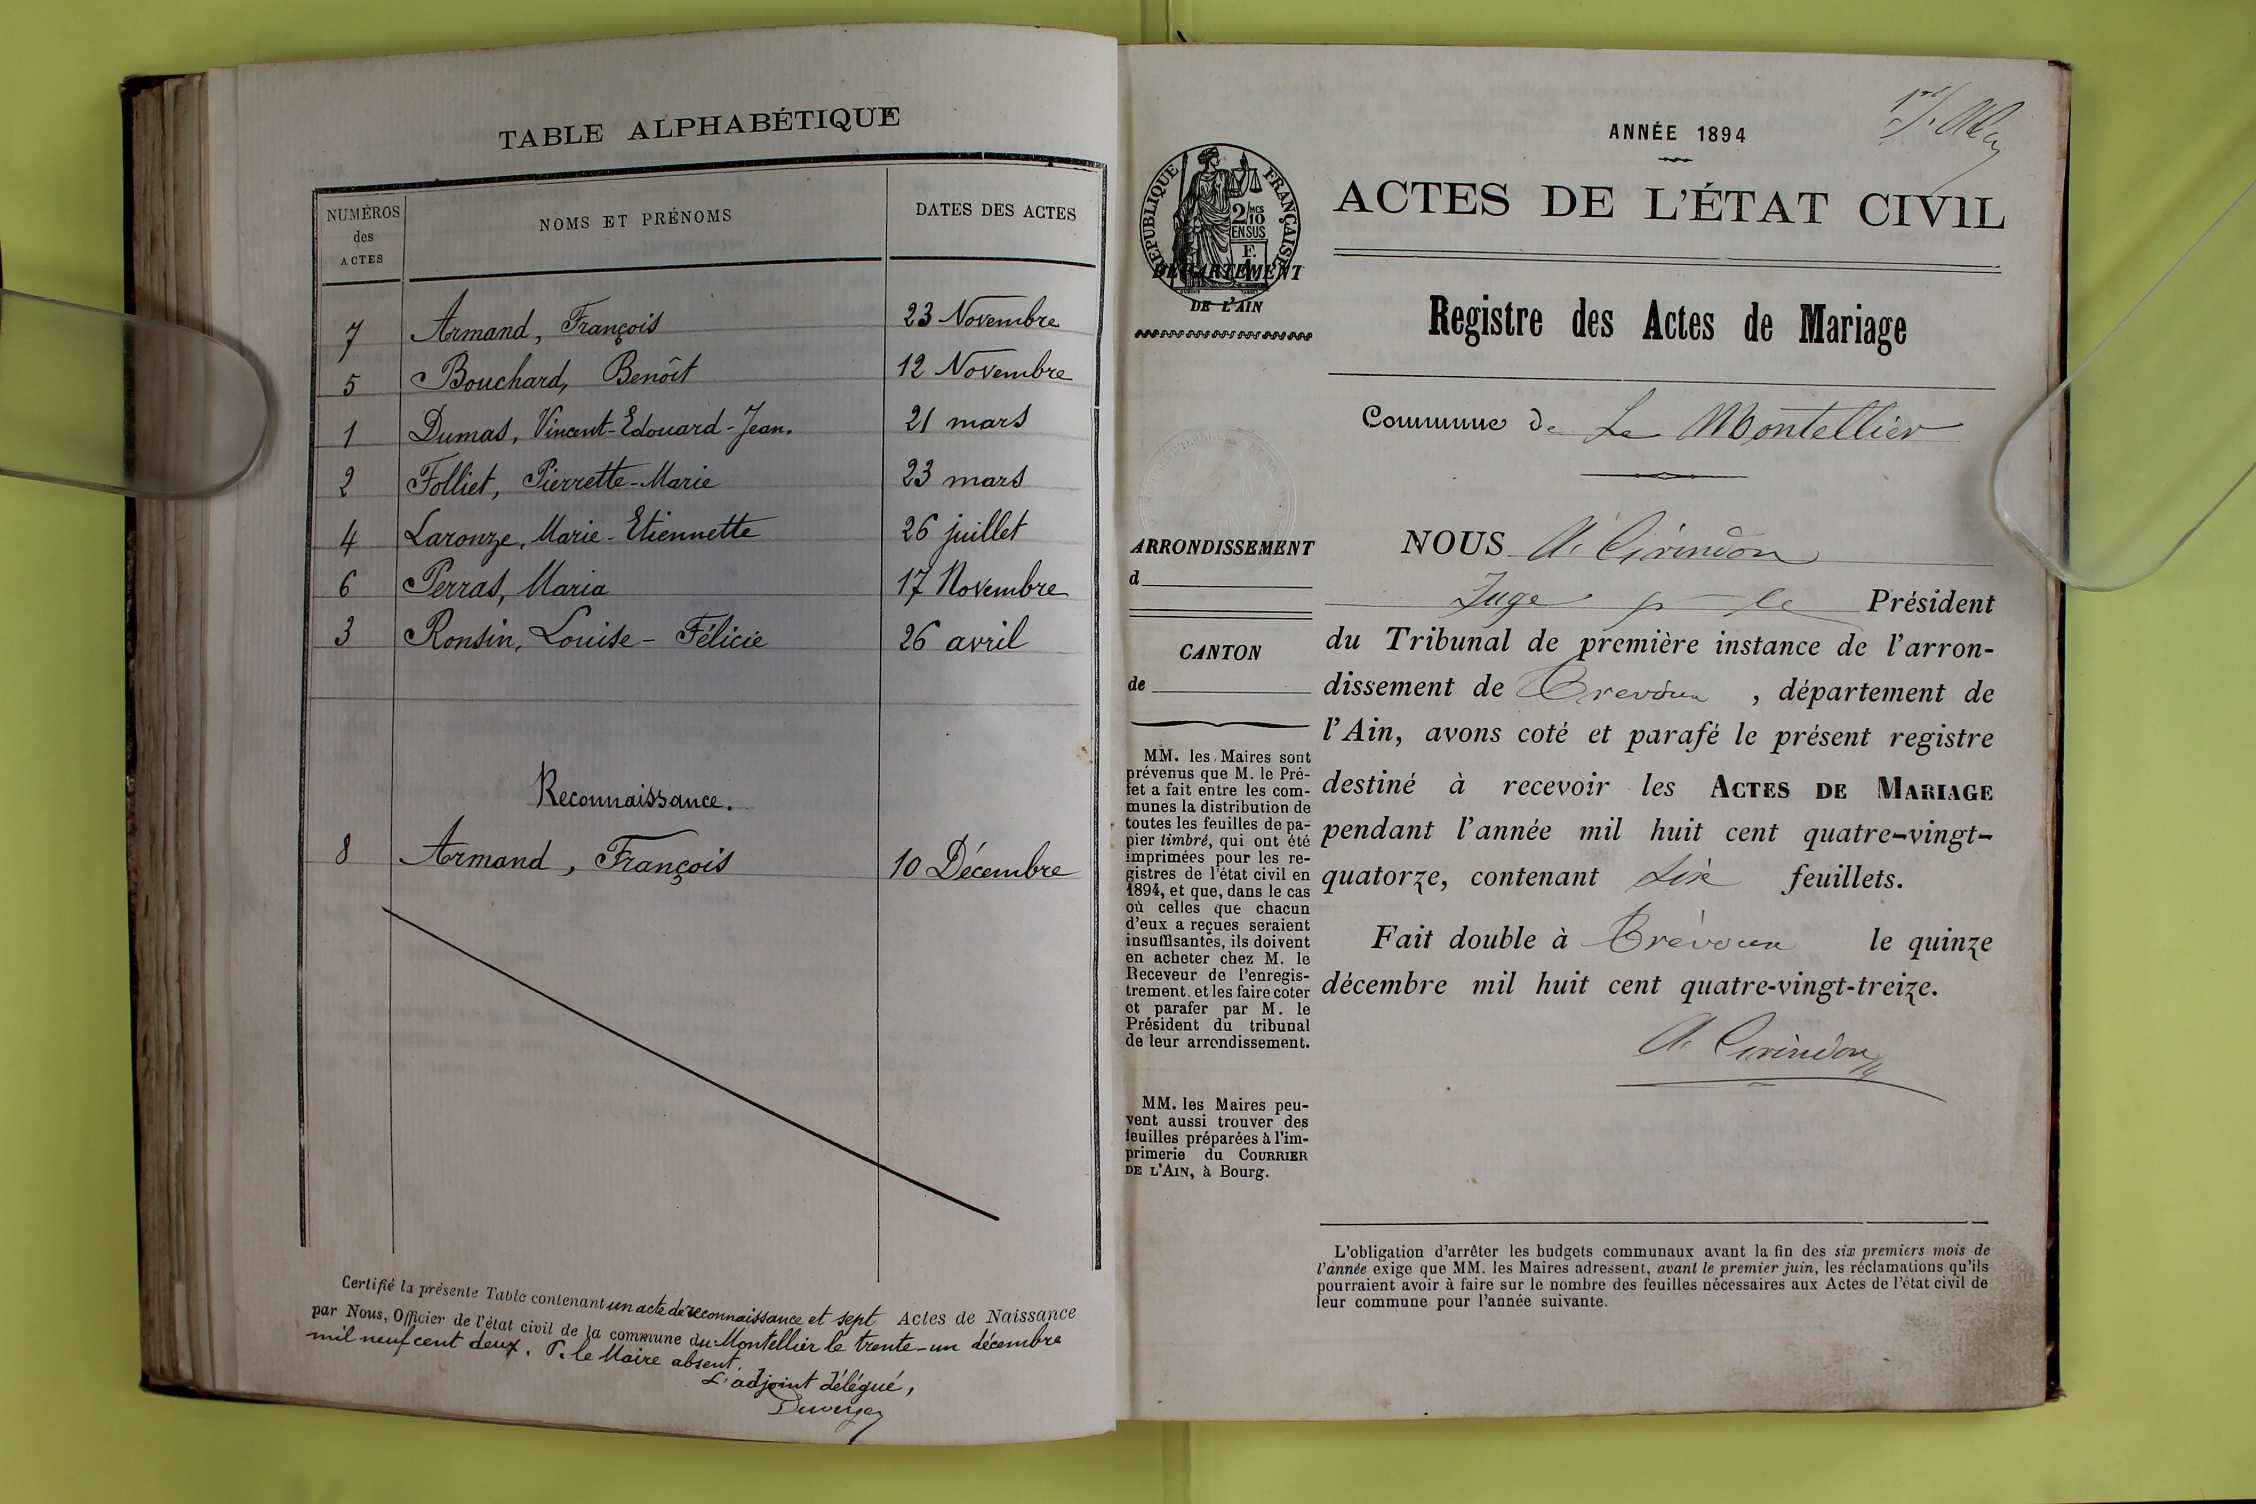 TABLE ALPHABÉTIQUE
NUMÉROS des ACTES NOMS ET PRÉNOMS DATES DES ACTES
7 Armand, François 23 Novembre
5 Bouchard, Benoît 12 Novembre
1 Dumas, Vincent-Edouard-Jean. 21 mars
2 Folliet, Pierrette-Marie 23 mars
4 Laronze, Marie-Etiennette 26 juillet
6 Perras, Maria 17 Novembre
3 Ronsin, Louise-Félicie 26 avril
Reconnaissance.
8 Armand, François 10 Décembre
Certifié la présente Table contenant un acte de reconnaissance et sept Actes de Naissance
par Nous, Officier de l'état civil de la commune du Montellier le trente-un décembre
mil neuf cent deux. P. le Maire absent.
L'adjoint délégué,
ANNÉE 1894
RÉPUBLIQUE FRANÇAISE
2/10 MES
EN SUS
F.
DÉPARTEMENT
DE L'AIN
ACTES DE L'ÉTAT CIVIL
Registre des Actes de Mariage
Commune de Le Montellier
ARRONDISSEMENT
d
CANTON
de
MM. les Maires sont
prévenus que M. le Pré-
fet a fait entre les com-
munes la distribution de
toutes les feuilles de pa-
pier timbré, qui ont été
imprimées pour les re-
gistres de l'état civil en
1894, et que, dans le cas
où celles que chacun
d'eux a reçues seraient
insuffisantes, ils doivent
en acheter chez M. le
Receveur de l'enregis-
trement. et les faire coter
et parafer par M. le
Président du tribunal
de leur arrondissement.
MM. les Maires peu-
vent aussi trouver des
feuilles préparées à l'im-
primerie du COURRIER
DE L'AIN, à Bourg.
NOUS A.
Juge p. le Président
du Tribunal de première instance de l'arron-
dissement de Trévoux, département de
l'Ain, avons coté et parafé le présent registre
destiné à recevoir les ACTES DE MARIAGE
pendant l'année mil huit cent quatre-vingt-
quatorze, contenant six feuillets.
Fait double à Trévoux le quinze
décembre mil huit cent quatre-vingt-treize.
L'obligation d'arrêter les budgets communaux avant la fin des six premiers mois de
l'année exige que MM. les Maires adressent, avant le premier juin, les réclamations qu'ils
pourraient avoir à faire sur le nombre des feuilles nécessaires aux Actes de l'état civil de
leur commune pour l'année suivante.